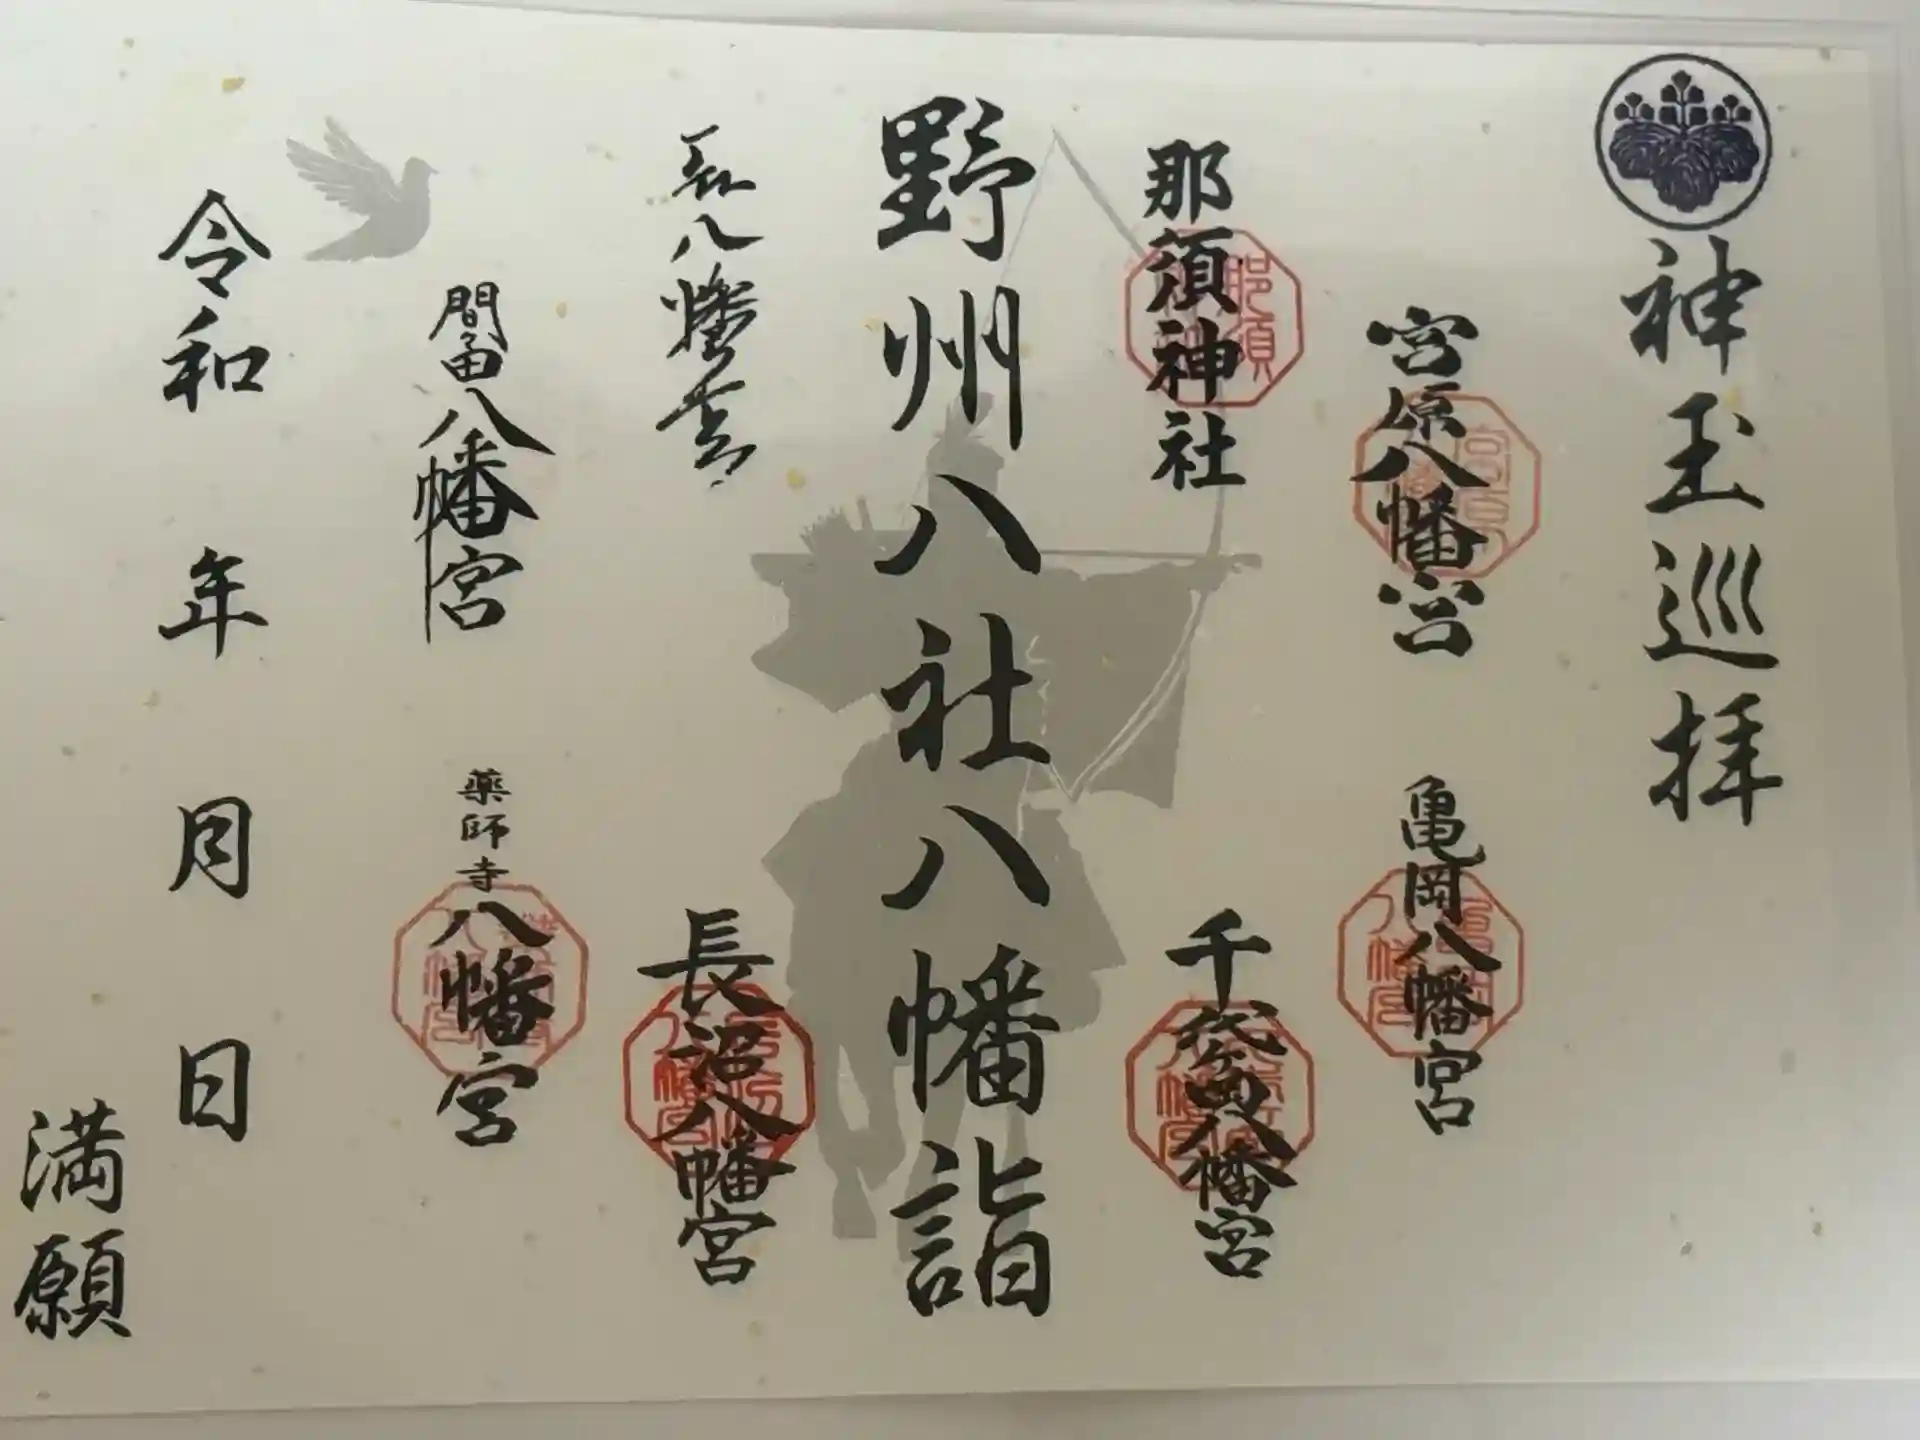 神玉巡拝
宮原八幡宮
亀岡八幡宮
那須神社
千袋八幡宮
野州八社八幡詣
八幡宮
長沼八幡宮
間々田八幡宮
薬師寺八幡宮
令和 年 月 日
満願